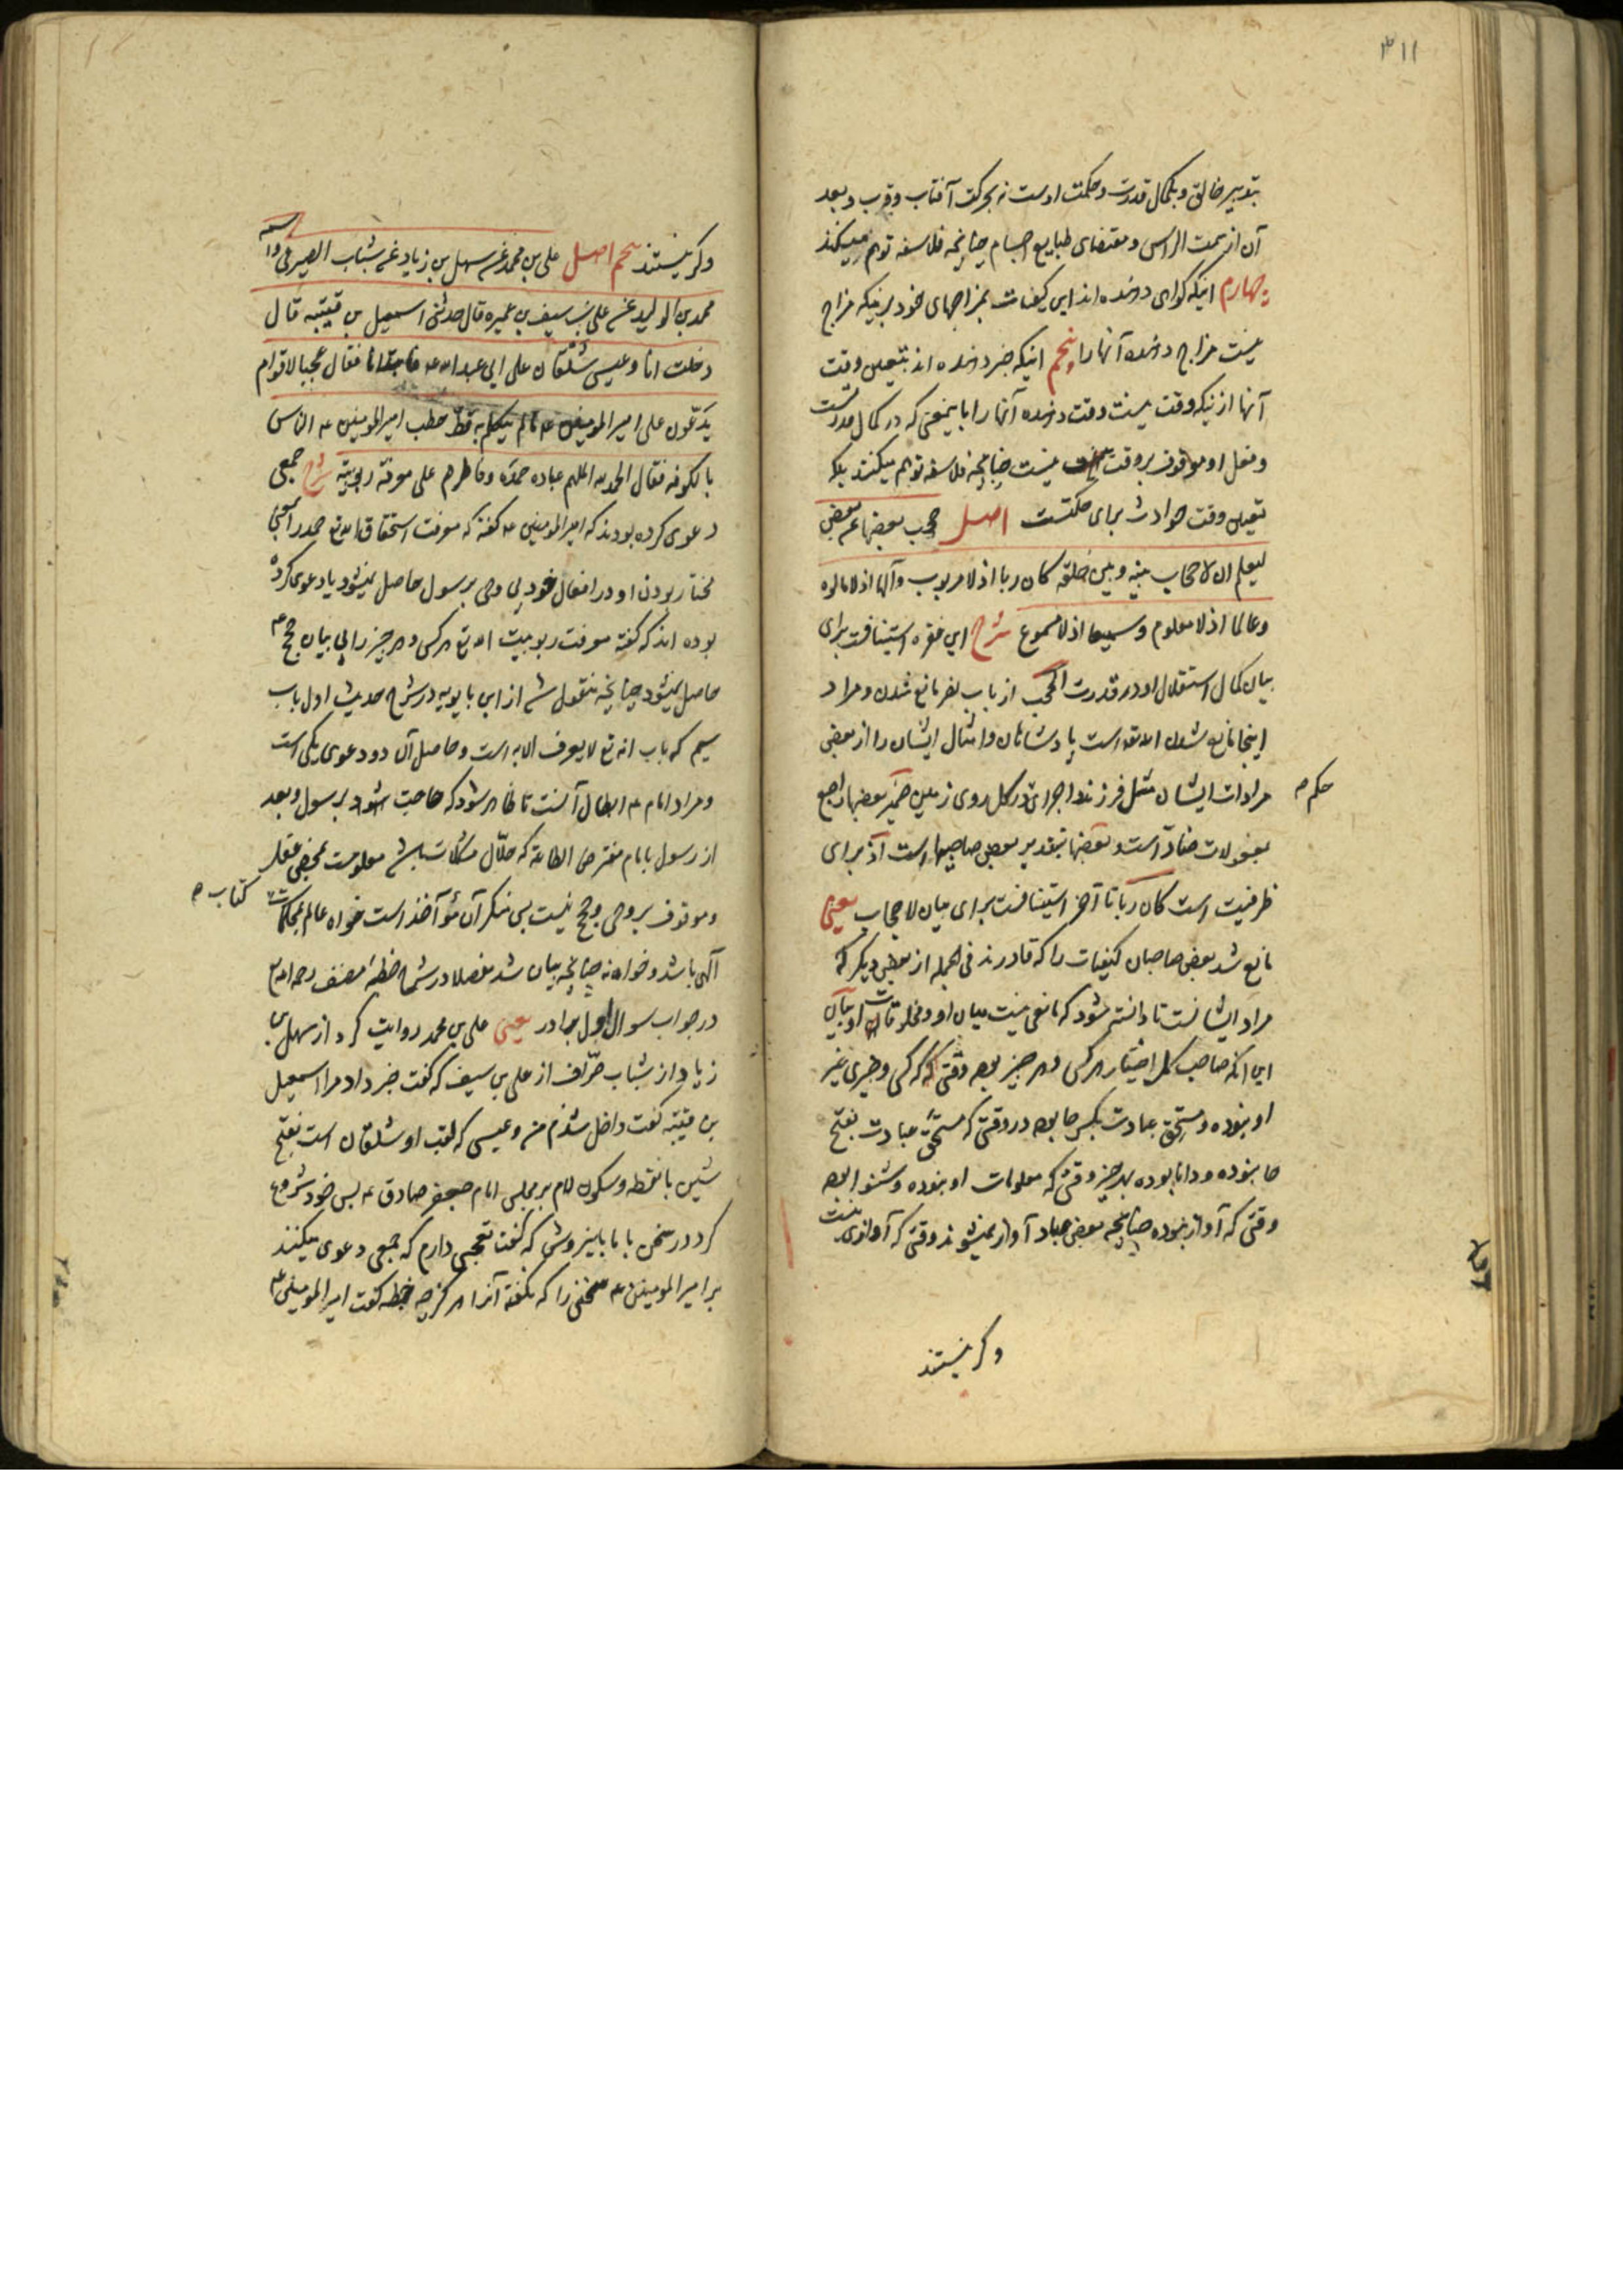 ۳۱۱
بتدبیر خالق و بکمال قدرت و حکمت اوست نه بحرکت آفتاب و قرب و بعد
آن از سمت الراس و مقتضای طبایع اجسام چنانچه فلاسفه توهم میکنند
چهارم اینکه گواهی دهنده اند این کیفیات بمزاجهای خود برینکه مزاج
نیست مزاج دهنده آنها را پنجم اینکه خبر دهنده اند بتعیین وقت
آنها ازینکه وقت نیست وقت دهنده آنها را باینمعنی که در کمال قدرتست
و فعل او موقوف بر وقت نیست چنانچه فلاسفه توهم میکنند بلکه
تعیین وقت حوادث برای حکمتست اصل حجب بعضها عن بعض
لیعلم ان لا حجاب بینه و بین خلقه کان ربا اذ لا مربوب و آلها اذ لا مالوه
و عالما اذ لا معلوم و سمیعا اذ لا مسموع شرح این فقره استینافت برای
بیان کمال استقلال او در قدرت الحجب از باب نصر مانع شدن و مراد
اینجا مانع شدن الله تعالی است پادشاهان و امثال ایشان را از بعض
مرادات ایشان مثل فرزند و اجرای در کل روی زمین ضمیر بعضها راجع
حکم صح
بمفعولات مضادة است و بعضها بتقدیر بعض صاحبیها است اذ برای
ظرفیت است کان ربا تا آخر استینافست برای بیان لا حجاب یعنی
مانع شد بعض صاحبان کیفیات را که قادرند فی الجمله از بعض دیگر که
مراد ایشانست تا دانسته شود که مانعی نیست میان او و مخلوقات او بیان
این آنکه صاحب کل اختیار هر کس و هر چیز بوده وقتی که کسی و چیزی غیر
او نبوده و مستحق عبادت بکسر حا بوده در وقتی که مستحق عبادت بفتح
حا نبوده و دانا بوده بهر چیز وقتی که معلومات او نبوده و شنوا بوده
وقتی که آواز نبوده چنانچه بعض عباد آواز میشنوند وقتی که آوازی نیست
و کر نیستند
و کر نیستند پنجم اصل علی بن محمد عن سهل بن زیاد عن شباب الصیرفی و اسمه
محمد بن الولید عن علی بن سیف بن عمیره قال حدثنی اسمعیل بن قتیبه قال
دخلت انا و عیسی شلقان علی ابی عبد الله ع فابتدانا فقال عجبا لاقوام
یدعون علی امیر المومنین ع مالم یتکلم به قط خطب امیر المومنین ع الناس
بالکوفه فقال الحمد لله الملهم عباده حمده و فاطرهم علی معرفة ربوبیته شرح جمعی
دعوی کرده بودند که امیر المومنین ع گفته که معرفت استحقاق الله تع حمد را بمعنی
مختار بودن او در افعال خود بی وحی بر رسول حاصل نمیشود یا دعوی کرده
بوده اند که گفته معرفت ربوبیت الله تع هر کس و هر چیز را بی بیان حجج ع
حاصل نمیشود چنانچه منقول شد از ابن بابویه در شرح حدیث اول باب
سیم که باب انه تع لا یعرف الا به است و حاصل آن دو دعوی یکی است
و مراد امام ع ابطال آنست تا ظاهر شود که حاجت شود برسول و بعد
از رسول بامام مفترض الطاعة که حلال مشکلات باشد معلومست بمحض عقل
و موقوف بر وحی و حجج نیست پس منکر آن مؤاخذ است خواه عالم بمحکمات
کتاب صح
الهی باشد و خواه نه چنانچه بیان شد مفصلا در شرح خطبه مصنف رحمه الله تع
در جواب سوال اول برادر یعنی علی بن محمد روایت کرد از سهل بن
زیاد از شباب صراف از علی بن سیف که گفت خبر داد مرا اسمعیل
بن قتیبه گفت داخل شدم من و عیسی که لقب او شلقان است بفتح
شین با نقطه و سکون لام بر مجلس امام جعفر صادق ع پس خود شروع
کرد در سخن با ما باینروش که گفت تعجبی دارم که جمعی دعوی میکنند
بر امیر المومنین ع سخنی را که نگفته آنرا هرگز چه خطبه گفت امیر المومنین ع